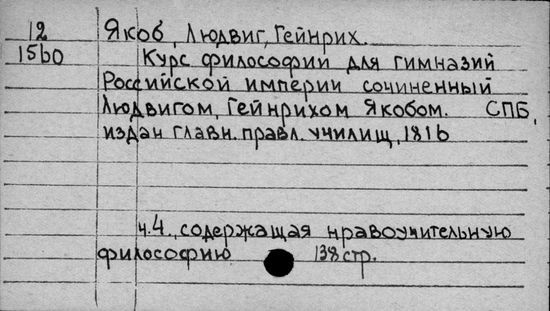 12 Якоб, Людвиг, Гейнрих.
15b0 Курс философии для гимназий
Российской империи сочиненный
Людвигом, Гейнрихом Якобом. СПБ,
издан главн. правл. училищ, 1816
ч.4, содержащая нравоучительную
философию 138 стр.